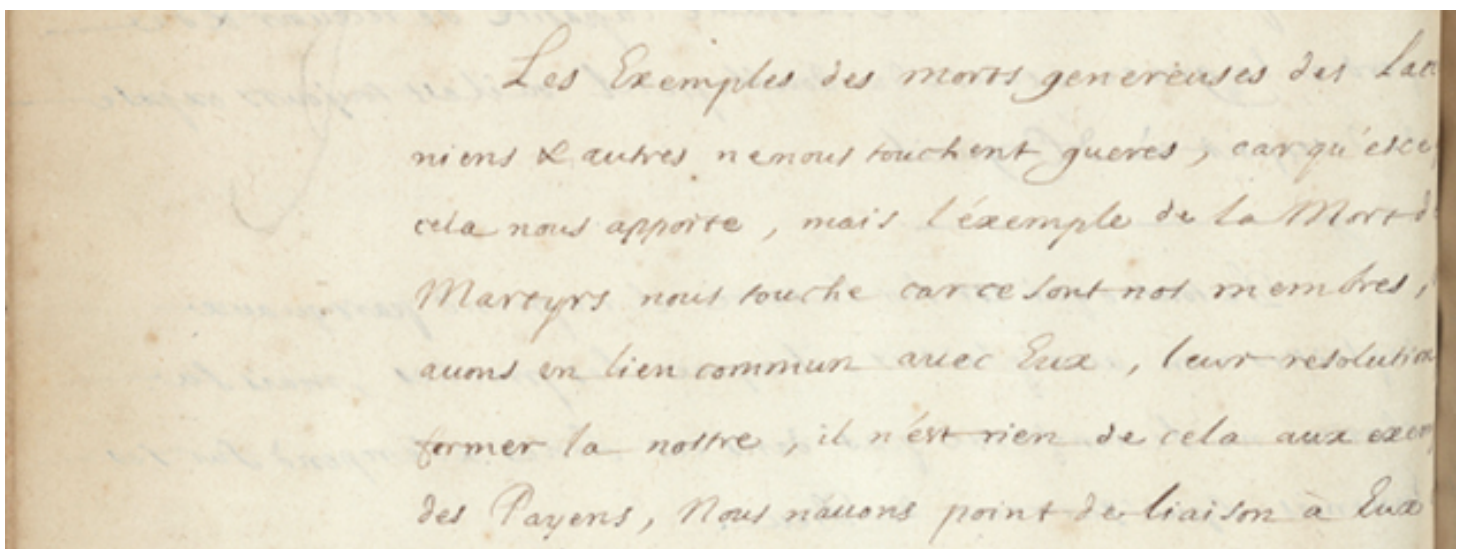 Les Exemples des morts genereuses des Lac
niens & autres ne nous touchent gueres, car qu'esce
cela nous apporte, mais l'éxemple de la Mort d
Martyrs nous touche car ce sont nos membres,
auons en lien commun auec Eux, leur resolution
former la nostre, il n'est rien de cela aux exem
des Payens, Nous nauons point de liaison à Eux